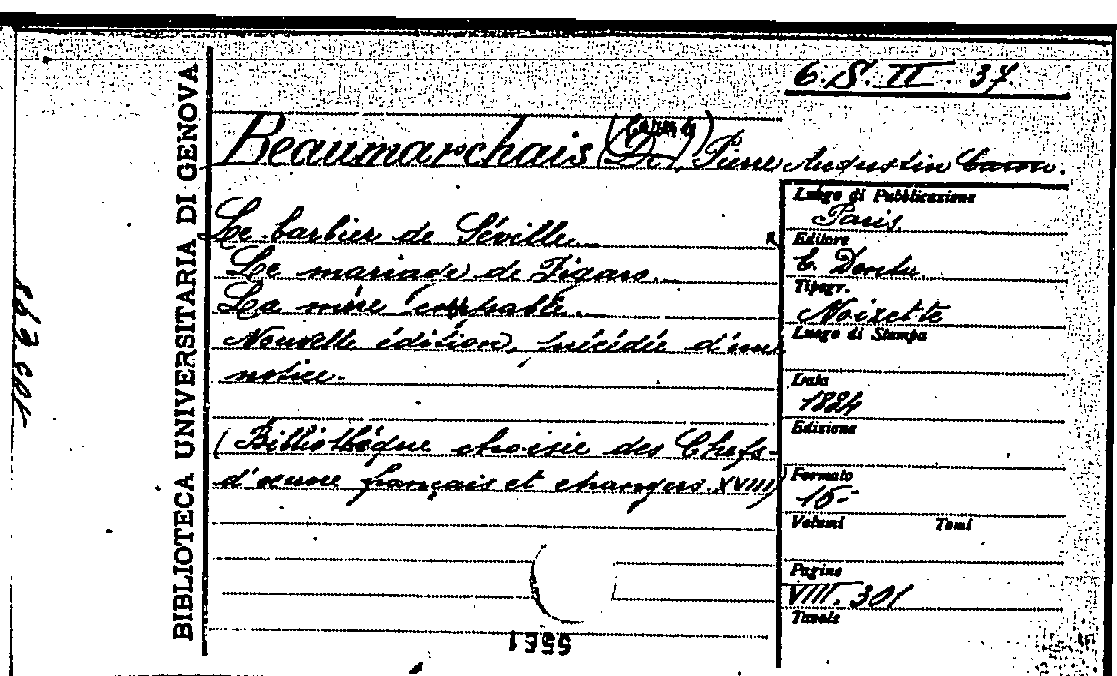 6. S. II. 37.
Beaumarchais (Caron de) Pierre Augustin Caron.
Le barbier de Séville.
Le mariage de Figaro.
La mère coupable.
Nouvelle édition, précédée d'une
notice.
(Bibliothèque choisie des Chefs-
d'œuvre français et étrangers. XVIII)
BIBLIOTECA UNIVERSITARIA DI GENOVA
Luogo di Pubblicazione
Paris.
Editore
E. Dentu.
Tipogr.
Noizette
Luogo di Stampa
Data
1884
Edizione
Formato
16-
Volumi Tomi
Pagine
VIII. 301
Tavole